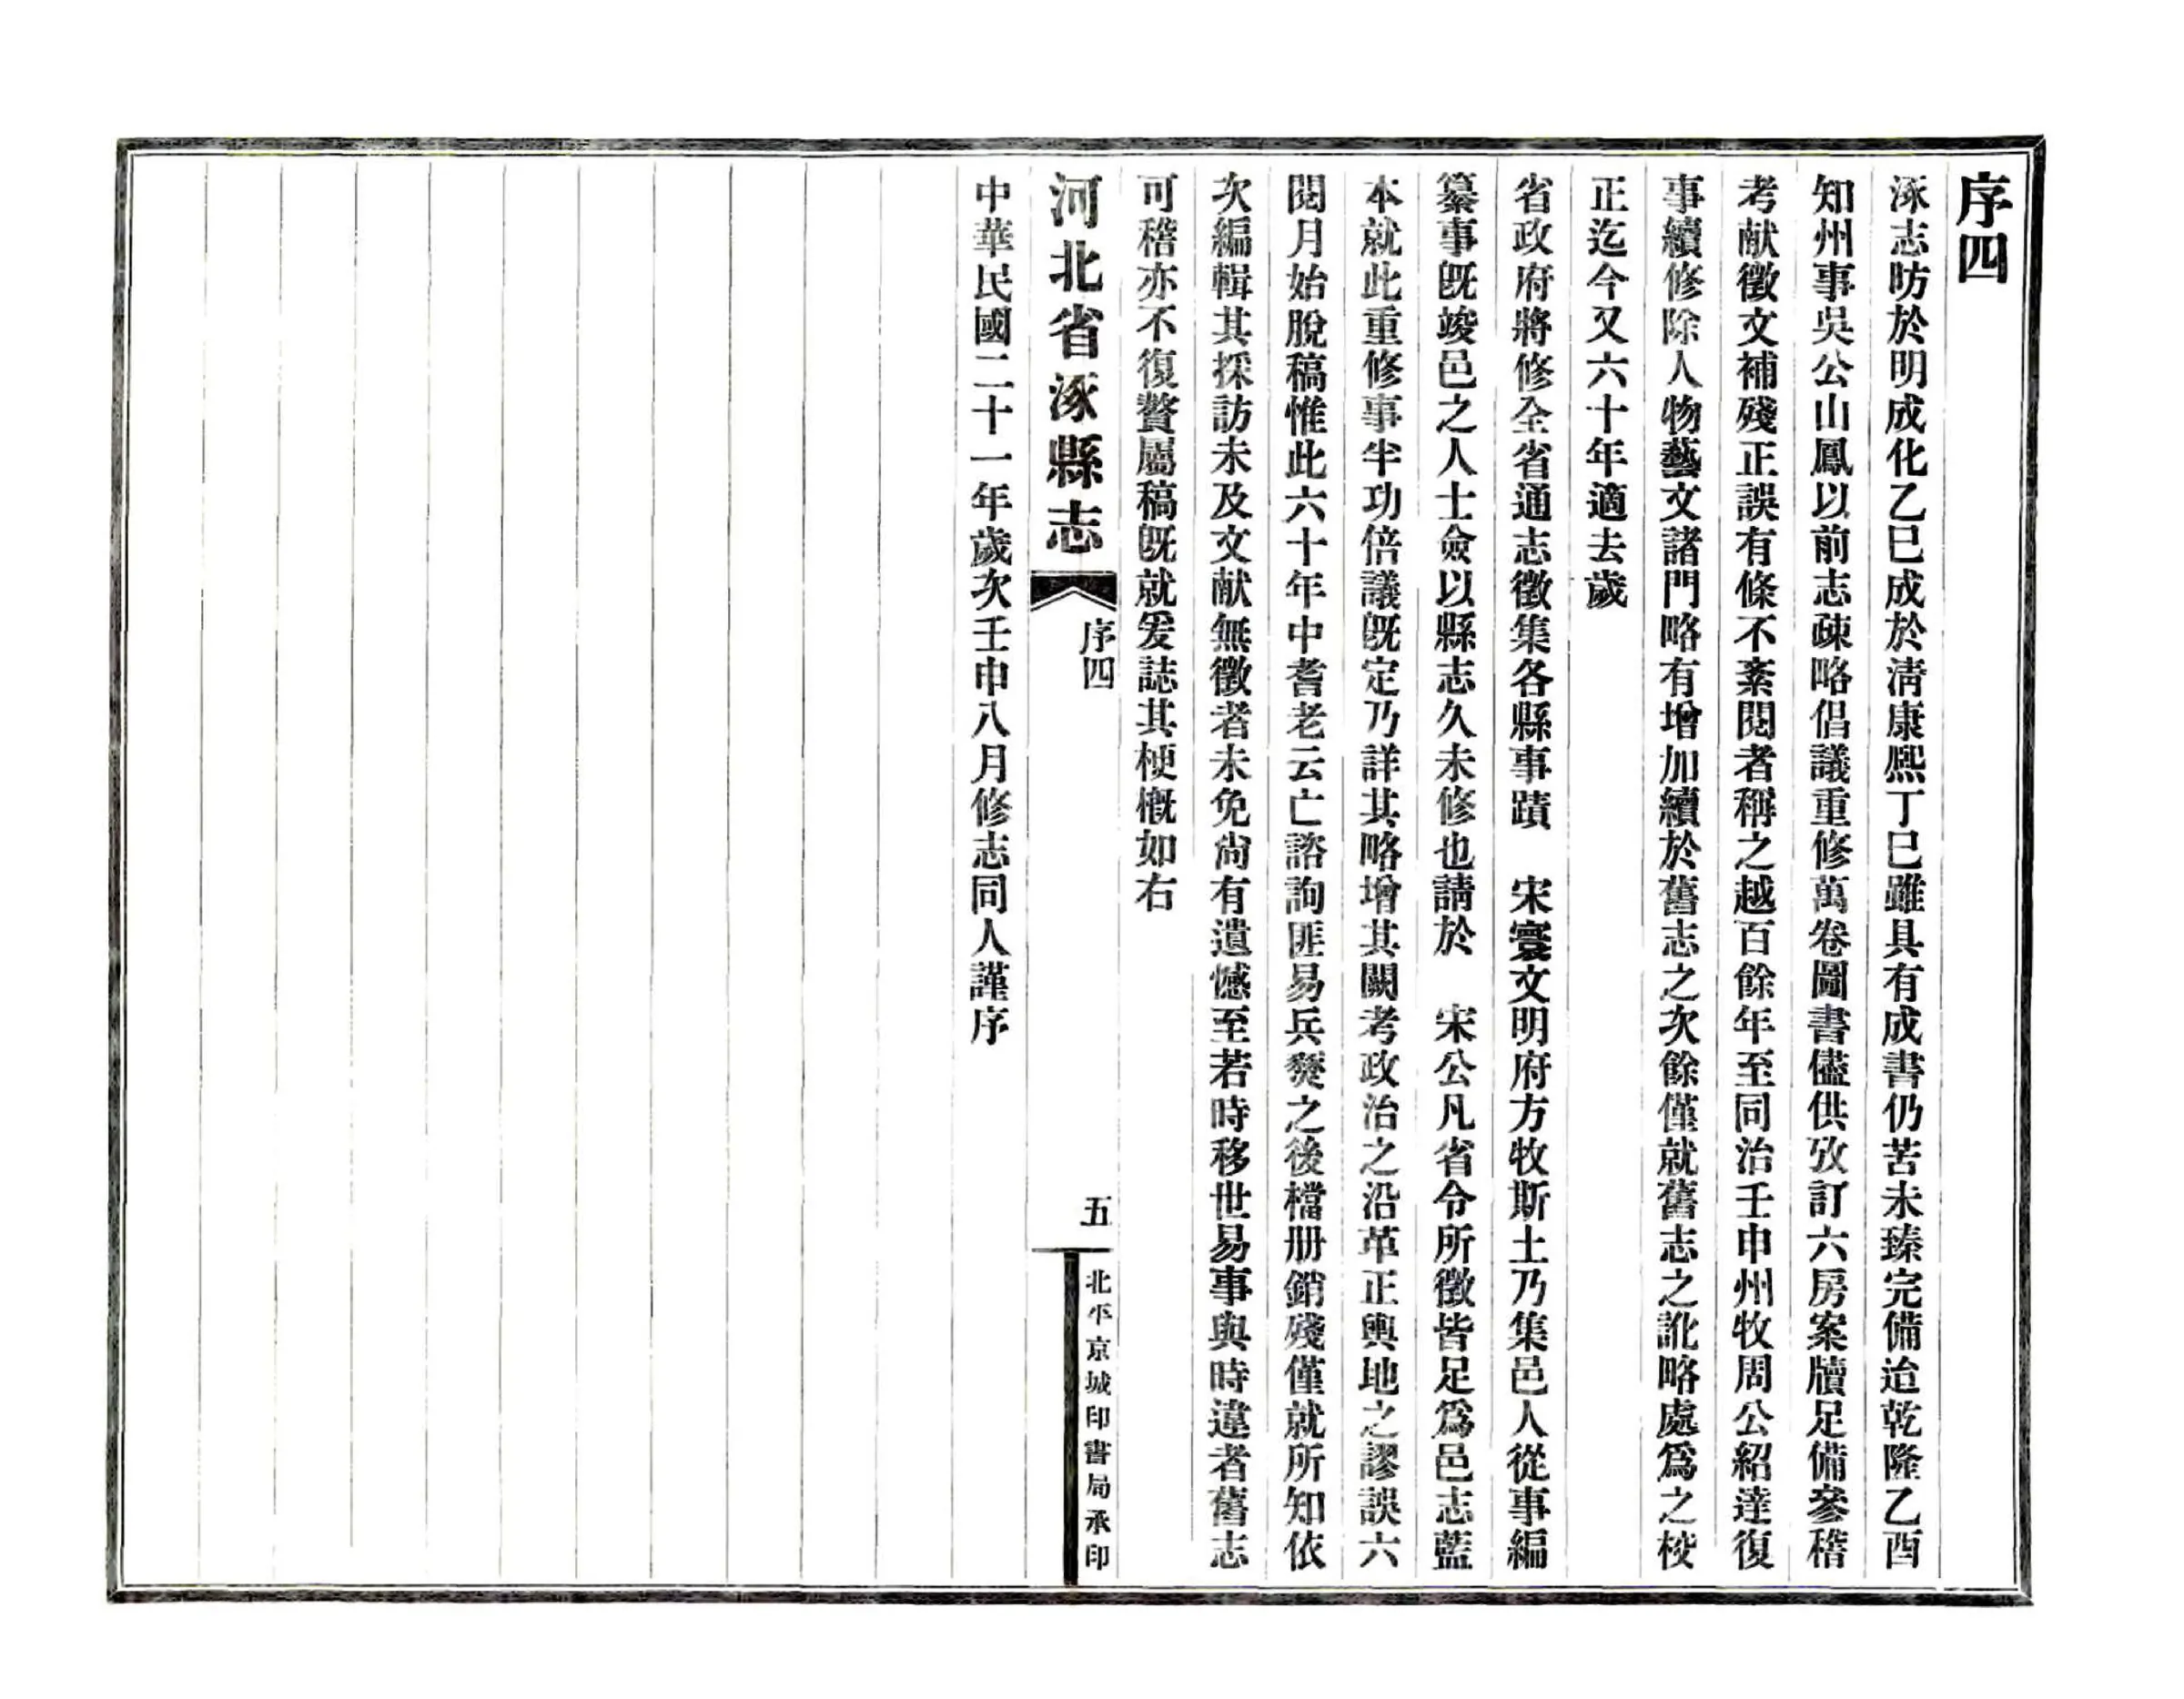 序四
涿志昉於明成化乙巳成於淸康熙丁巳雖具有成書仍苦未臻完備迨乾隆乙酉
知州事吳公山鳳以前志疎略倡議重修萬卷圖書儘供攷訂六房案牘足備參稽
考献徵文補殘正誤有條不紊閱者稱之越百餘年至同治壬申州牧周公紹達復
事續修除人物藝文諸門略有增加續於舊志之次餘僅就舊志之訛略處爲之校
正迄今又六十年適去歲
省政府將修全省通志徵集各縣事蹟　宋寰文明府方牧斯土乃集邑人從事編
纂事旣竣邑之人士僉以縣志久未修也請於　宋公凡省令所徵皆足爲邑志藍
本就此重修事半功倍議旣定乃詳其略增其闕考政治之沿革正輿地之謬誤六
閱月始脫稿惟此六十年中耆老云亡諮詢匪易兵燹之後檔册銷殘僅就所知依
次編輯其採訪未及文献無徵者未免尙有遺憾至若時移世易事與時違者舊志
可稽亦不復贅屬稿旣就爰誌其梗槪如右
河北省涿縣志
序四
五
北平京城印書局承印
中華民國二十一年歲次壬申八月修志同人謹序